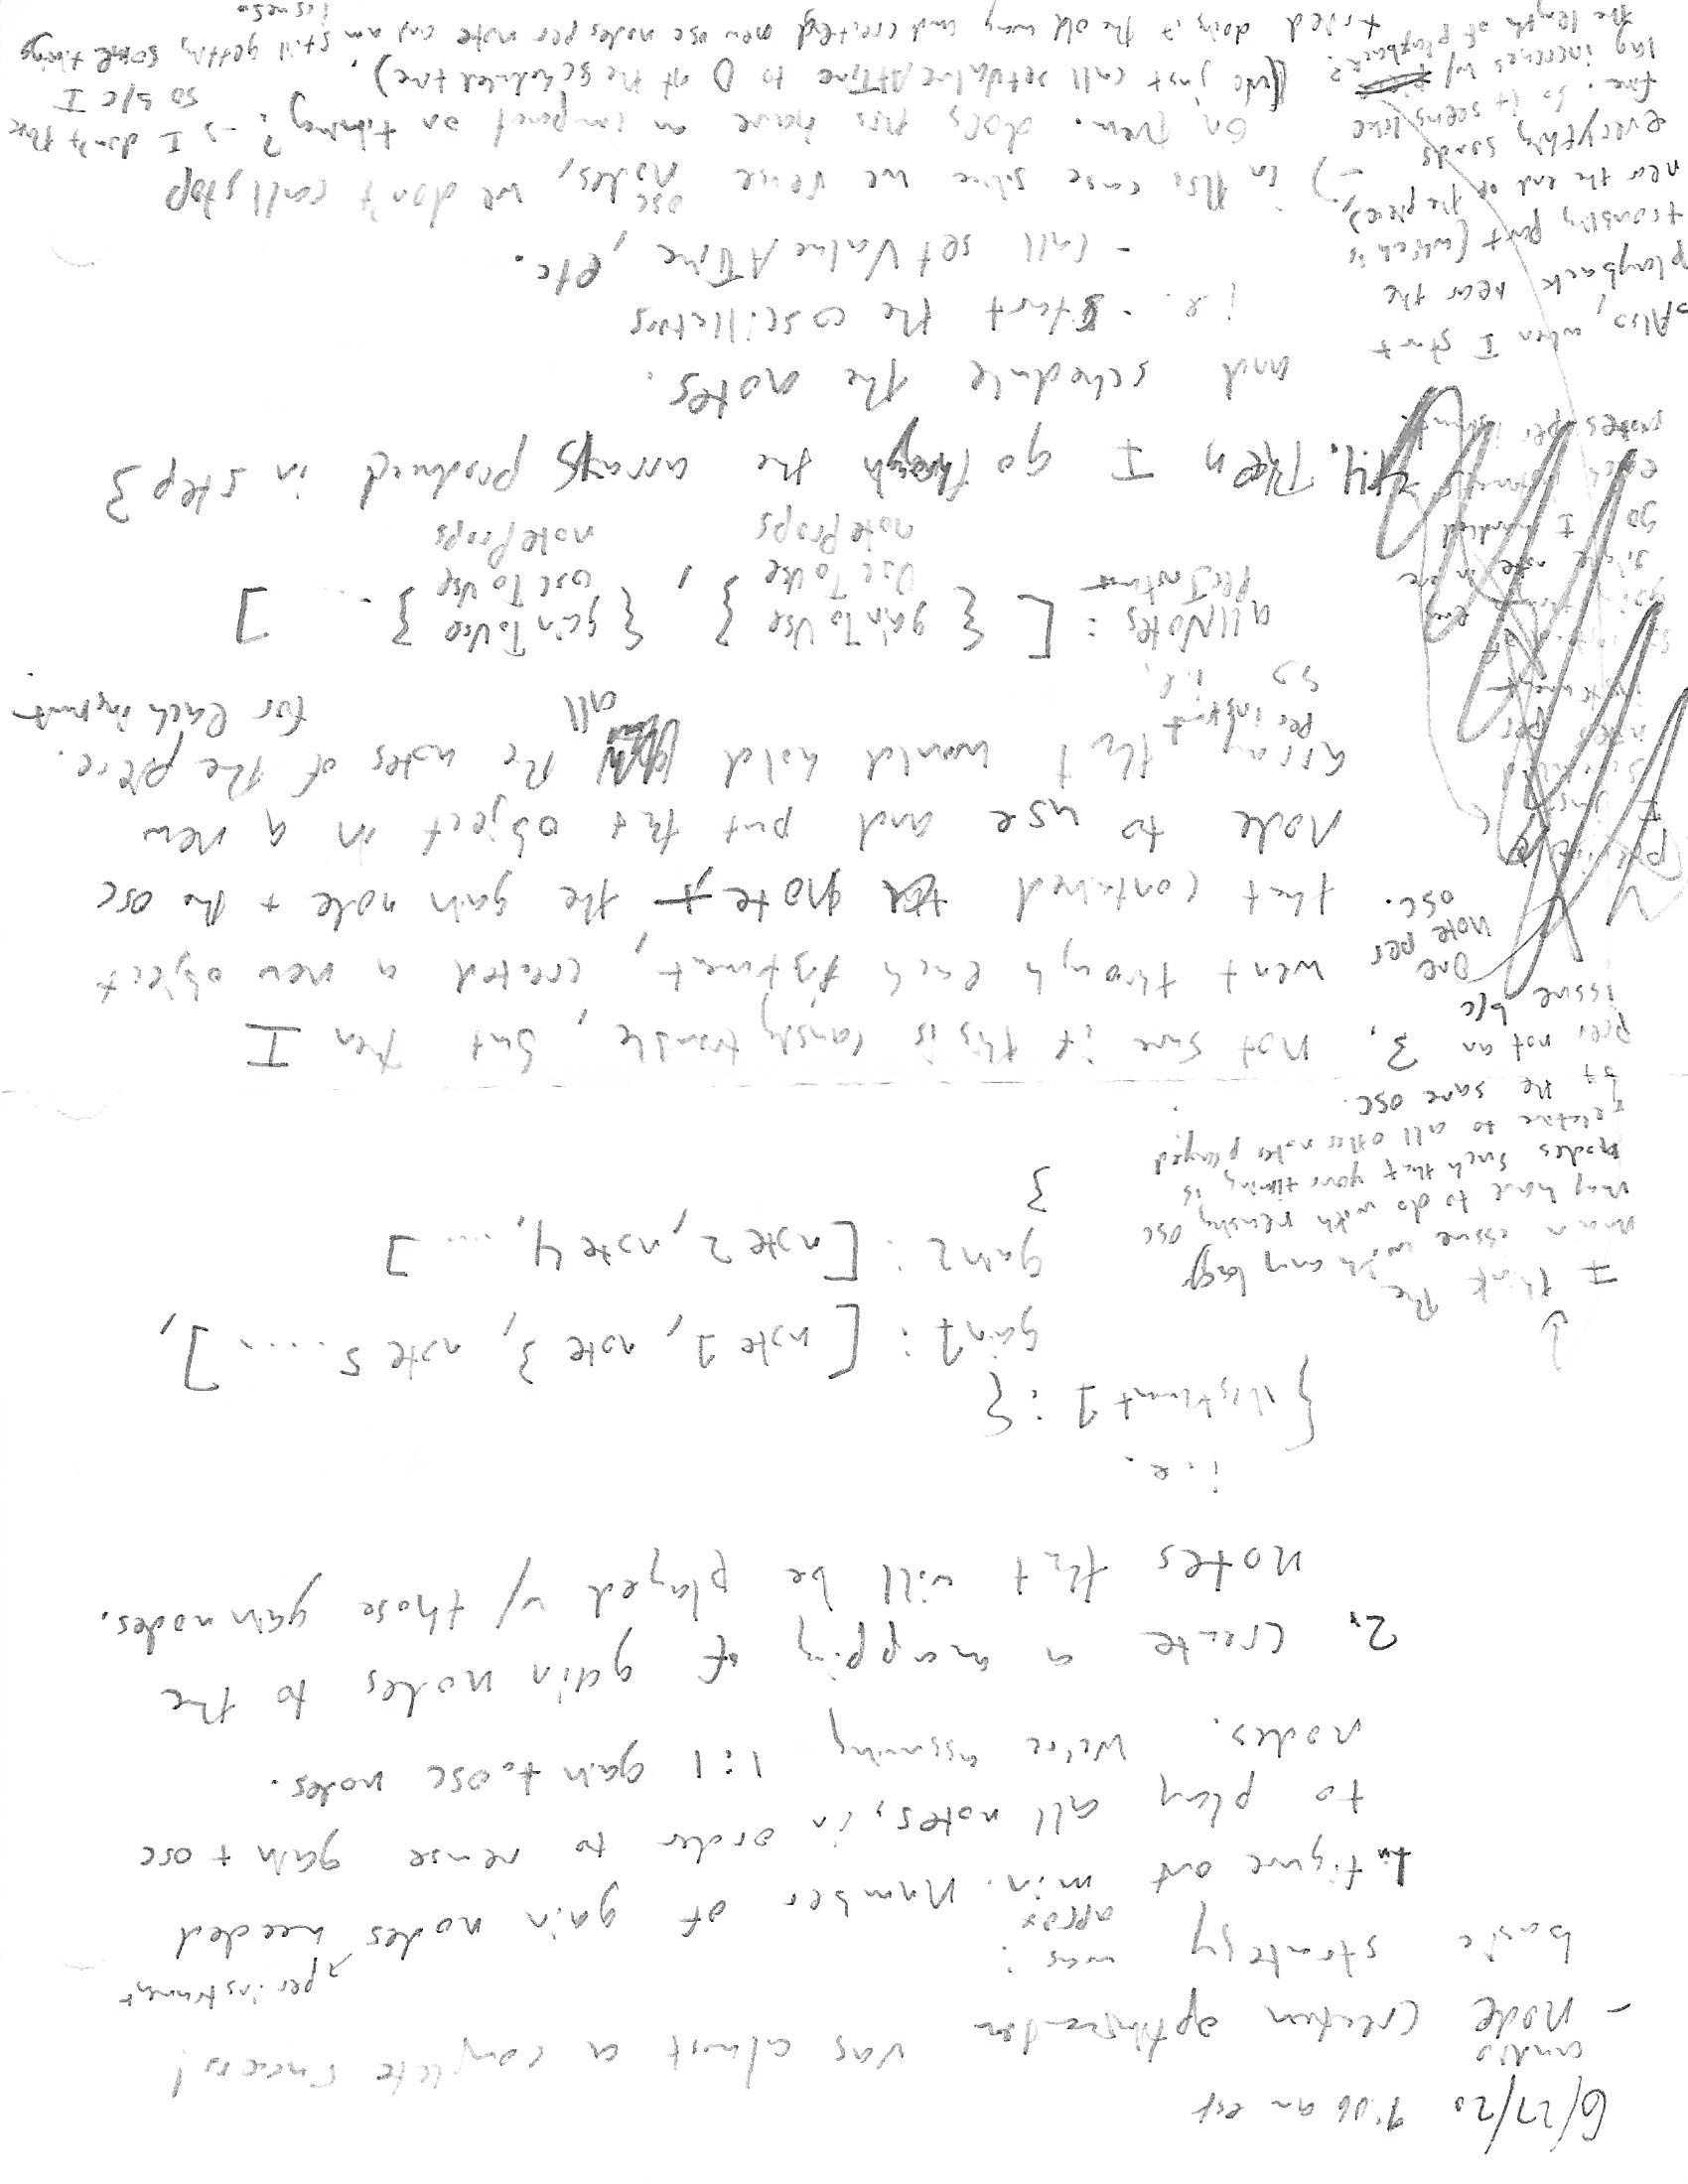 6/27/20 9:06 am est
audio
- node creation optimization was almost a complete success!
basic strategy was:
↗ per instrument
aprox
1. figure out min. number of gain nodes needed
to play all notes, in order to reuse gain + osc
nodes. We're assuming 1:1 gain to osc nodes.
2. create a mapping of gain nodes to the
notes that will be played w/ those gain nodes.
i.e.
{ instrument 1 : {
gain1 : [ note 1, note 3, note 5..... ],
gain2 : [note 2, note 4, .... ]
}
↓
I think the
main issue with any lag
may have to do with reusing osc
nodes such that your timing is
relative to all other notes played
by the same osc.
prev not an
issue b/c
one
note per
osc.
3. not sure if this is causing trouble, but then I
went through each instrument, created a new object
that contained note, the gain node + the osc
node to use and put that object in a new
array that would hold all the notes of the piece.
per instrument
for each instrument
so i.e.
allNotes : [ { gainToUse } , { gainToUse } ... ]
PerInstrument oscToUse oscToUse
noteProps noteProps
I just
per
instrument
single note in one
go I handled
notes per
4. Then I go through the arrays produced in step 3
and schedule the notes.
i.e. - start the oscillators
- call setValueAtTime, etc.
→ in this case since we reuse osc nodes, we don't call stop
on them. does this have an impact on timing? → I don't think
so b/c I
(we just call setValueAtTime to 0 at the scheduled time).
tried doing it the old way and created new osc nodes per note and am still getting some timing
issues.
Also, when I start
playback near the
troubling part (which is
near the end of the piece),
everything sounds
fine. so it seems like
lag increases w/
the length of playback?